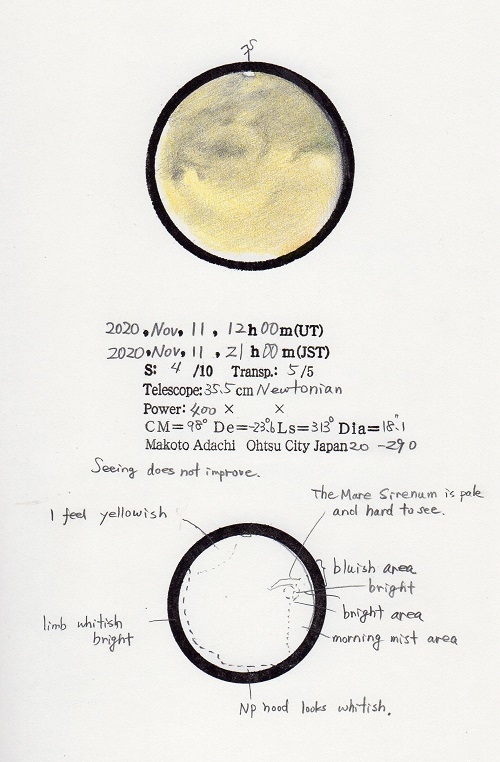 S
2020, Nov, 11, 12h00m(UT)
2020, Nov, 11, 21h00m(JST)
S: 4 /10 Transp.: 5/5
Telescope: 35.5 cm Newtonian
Power: 400 × ×
CM=98° De=-23.6 Ls=313° Dia=18."1
Makoto Adachi Ohtsu City Japan 20 -290
Seeing does not improve.
The Mare Sirenum is pale
and hard to see.
I feel yellowish
bluish area
bright
bright area
limb whitish
bright
morning mist area
Np hood looks whitish.